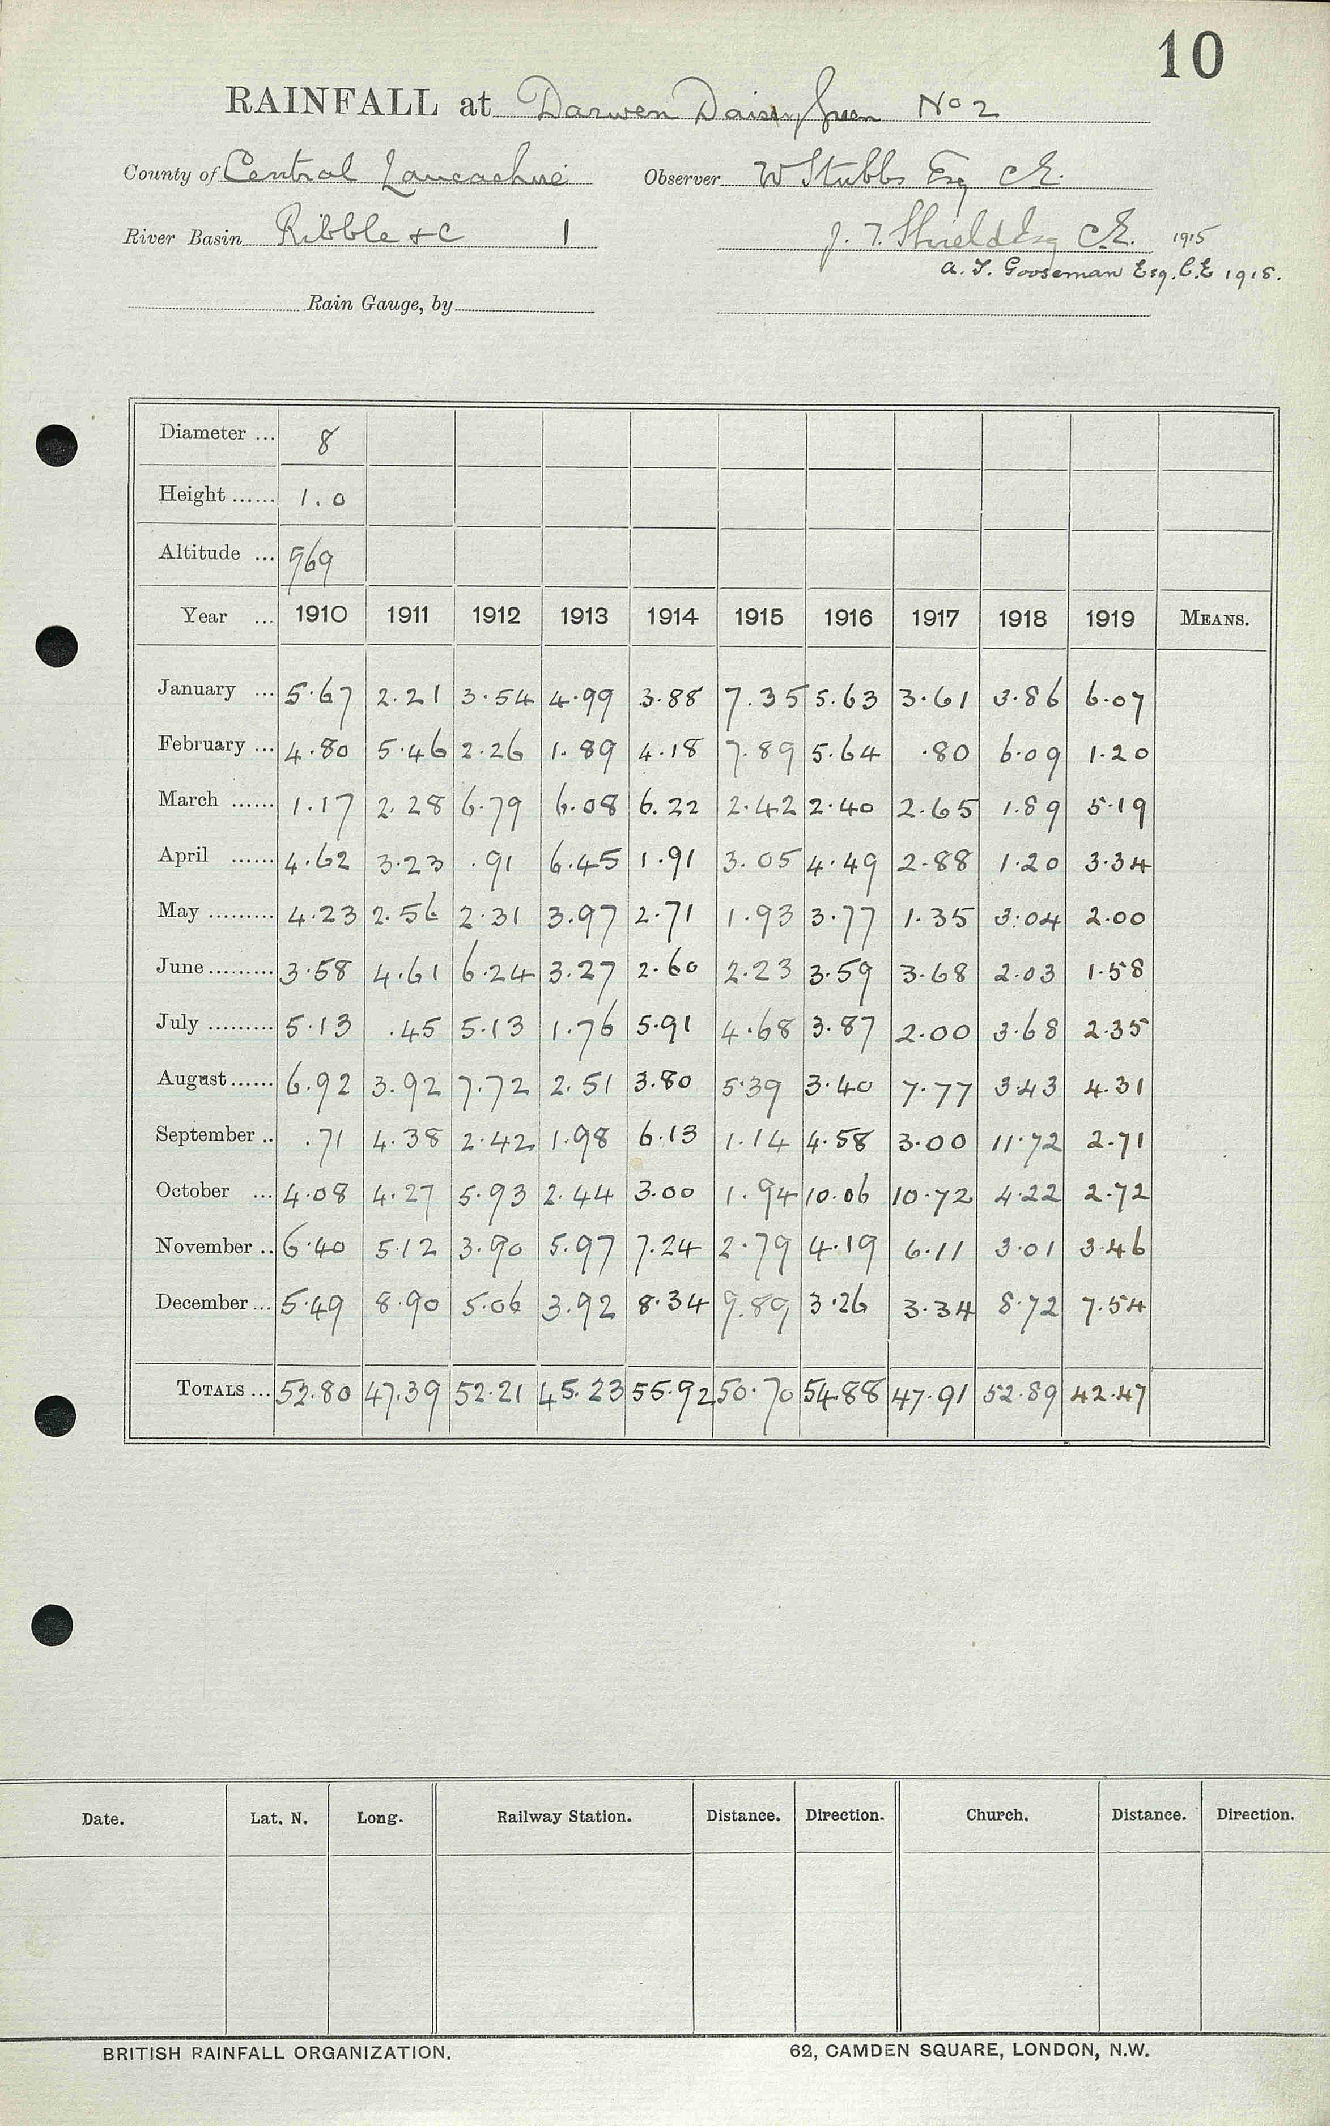 10
RAINFALL at Darwen Daisy Green No 2
County of Central Lancashire Observer W Stubbs Esq C.E.
River Basin Ribble &c 1 J. T. Shield Esq C.E. 1915
A. T. Gooseman Esq. C.E 1918.
Rain Gauge, by
Diameter ... 8
Height ...... 1.0
Altitude ...
Year ... 1910 1911 1912 1913 1914 1915 1916 1917 1918 1919 MEANS.
January ... 5.67 2.21 3.54 4.99 3.88 7.35 5.63 3.61 3.86 6.07
February ... 4.80 5.46 2.26 1.89 4.18 7.89 5.64 .80 6.09 1.20
March ...... 1.17 2.28 6.79 6.08 6.22 2.42 2.40 2.65 1.89 5.19
April ...... 4.62 3.23 .91 6.45 1.91 3.05 4.49 2.88 1.20 3.34
May ......... 4.23 2.56 2.31 3.97 2.71 1.93 3.77 1.35 3.04 2.00
June ......... 3.58 4.61 6.24 3.27 2.60 2.23 3.59 3.68 2.03 1.58
July ......... 5.13 .45 5.13 1.76 5.91 4.68 3.87 2.00 3.68 2.35
August ...... 6.92 3.92 7.72 2.51 3.80 5.39 3.40 7.77 3.43 4.31
September .. .71 4.38 2.42 1.98 6.13 1.14 4.58 3.00 11.72 2.71
October ... 4.08 4.27 5.93 2.44 3.00 1.94 10.06 10.72 4.22 2.72
November .. 6.40 5.12 3.90 5.97 7.24 2.79 4.19 6.11 3.01 3.46
December ... 5.49 8.90 5.06 3.92 8.34 9.89 3.26 3.34 8.72 7.54
TOTALS ... 52.80 47.39 52.21 45.23 55.92 50.70 54.88 47.91 52.89 42.47
Date. Lat. N. Long. Railway Station. Distance. Direction. Church. Distance. Direction.
BRITISH RAINFALL ORGANIZATION. 62, CAMDEN SQUARE, LONDON, N.W.